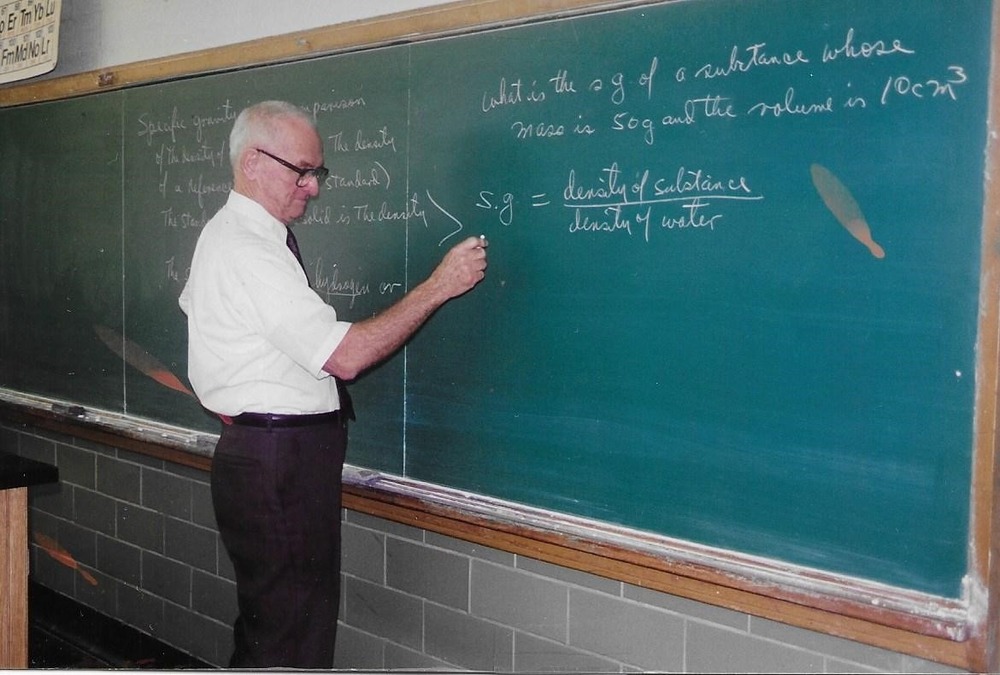 Er Tm Yb Lu
Fm Md No Lr
Specific gravity
of the density of The density
of a reference standard)
The solid is The density
The hydrogen or
what is the s g of a substance whose
mass is 50g and the volume is 10cm³
s.g = density of substance
density of water